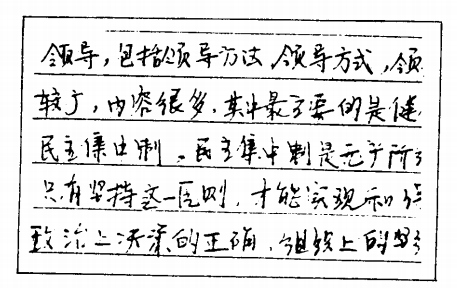 领导，包括领导方法，领导方式，领
较广，内容很多，其中最主要的是健
民主集中制。民主集中制是无产阶
只有坚持这一原则，才能实现和
政治上决策的正确，组织上的坚